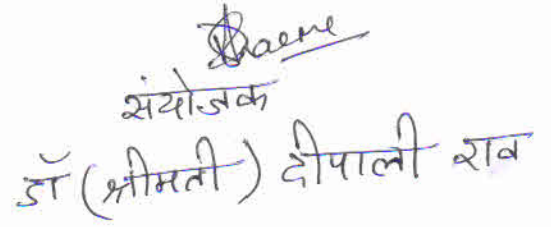 संयोजक
डॉ (श्रीमती) दीपाली राव